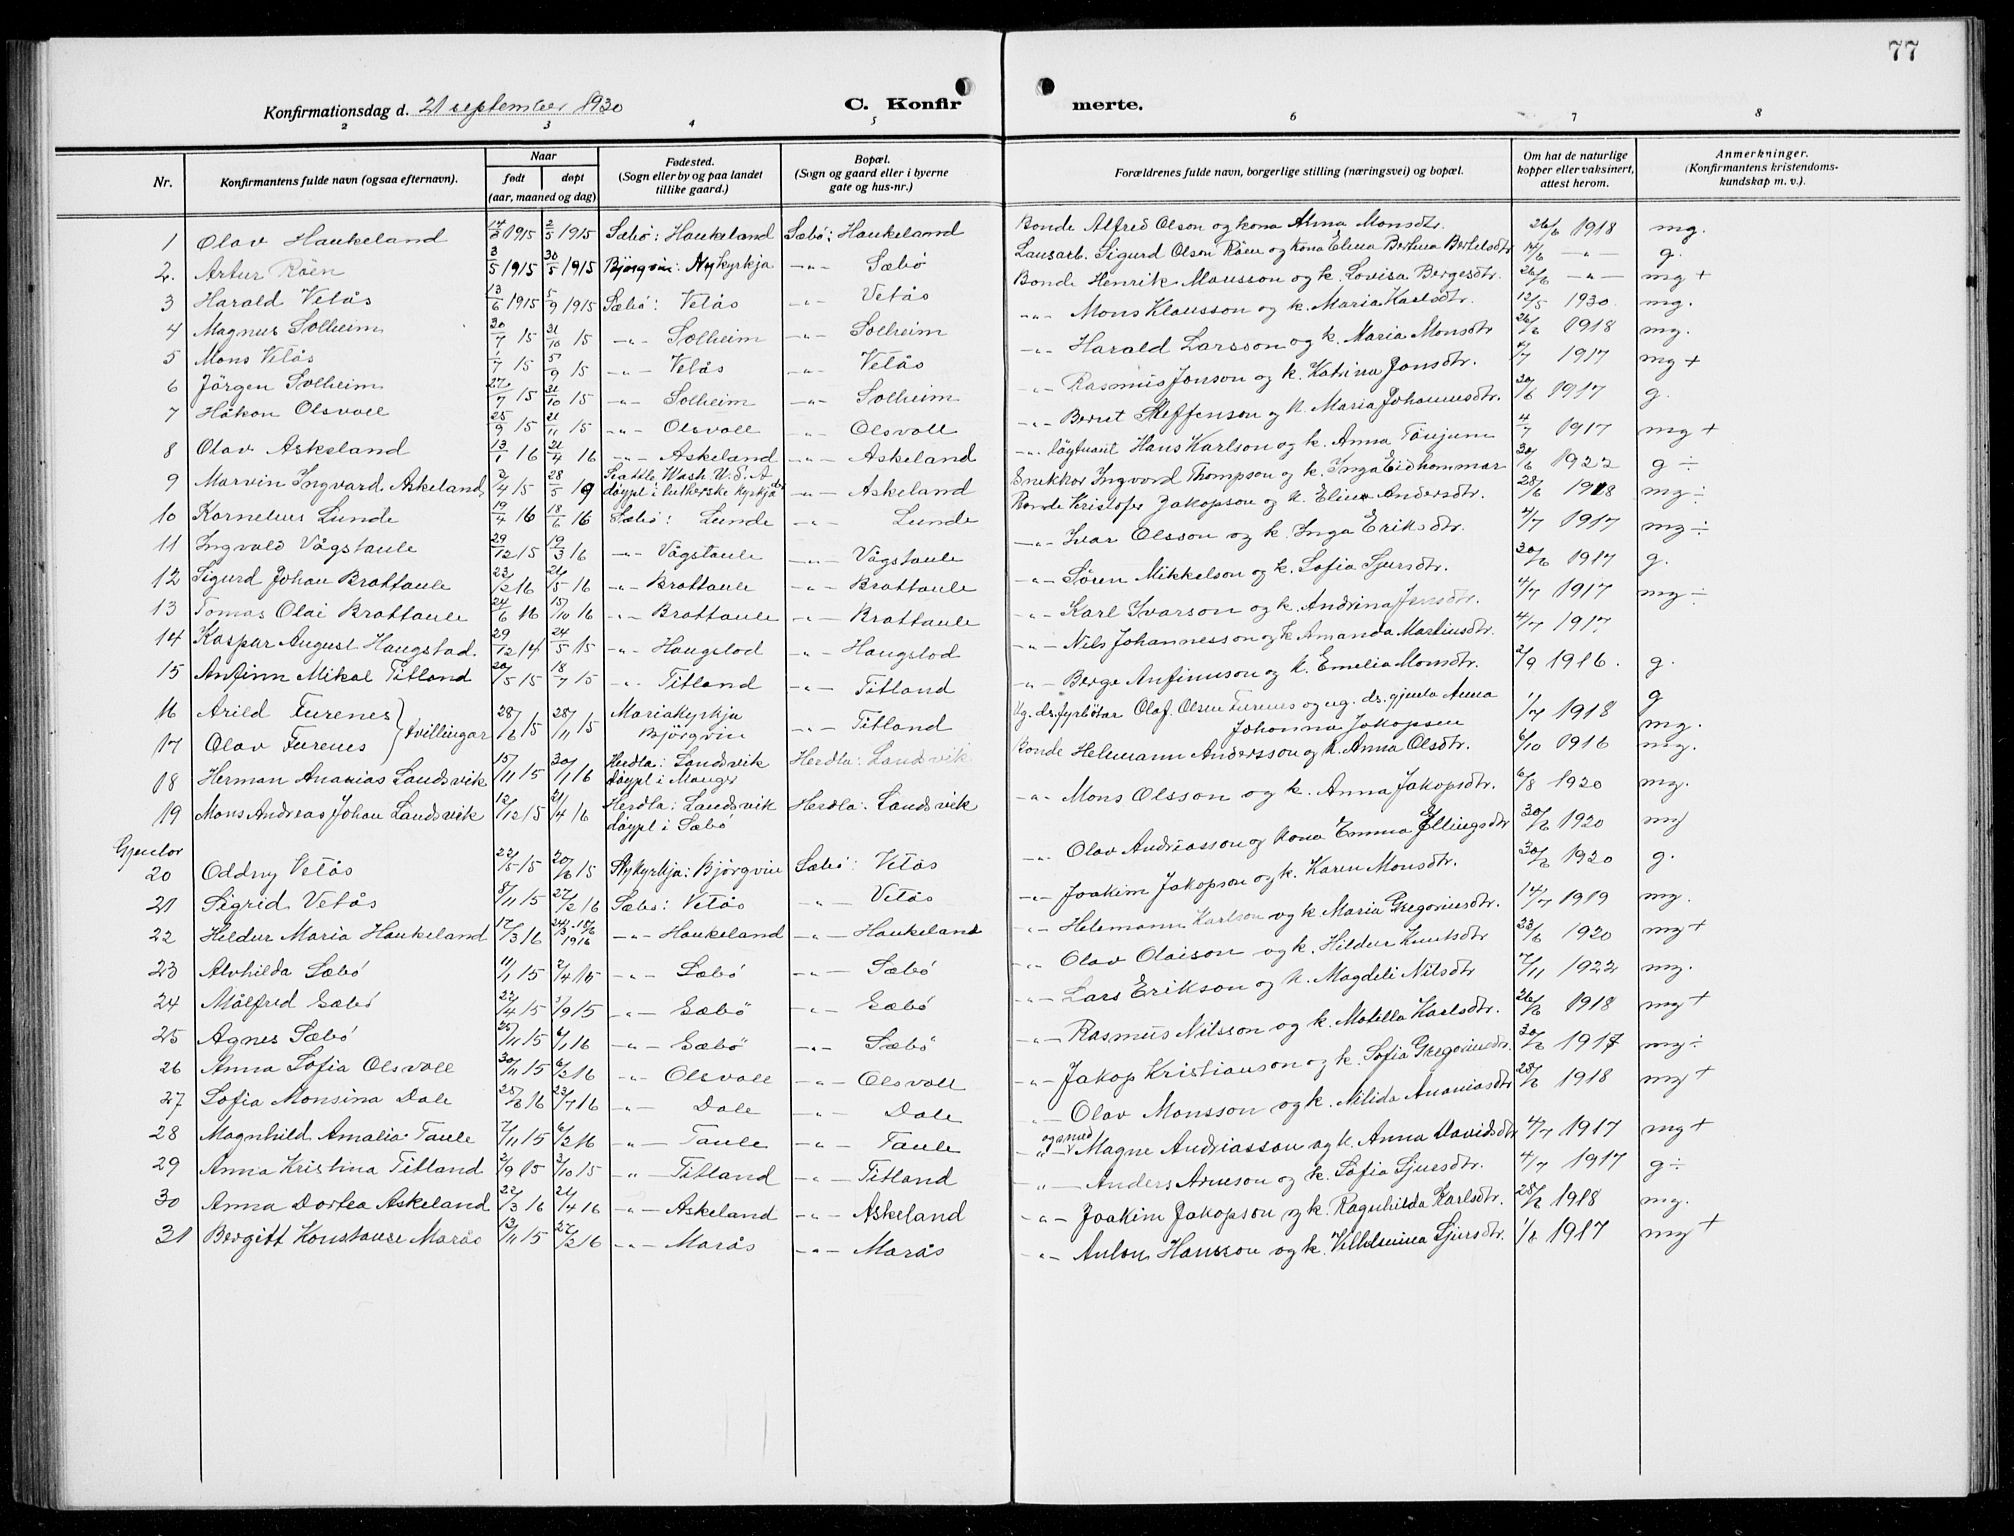 77
Konfirmationsdag d. 21 september 1930
C. Konfirmerte.
2 3 4 5 6 7 8
Nr. Konfirmantens fulde navn (ogsaa efternavn). Naar født døpt (aar, maaned og dag) Fødested. (Sogn eller by og paa landet tillike gaard.) Bopæl. (Sogn og gaard eller i byerne gate og hus-nr.) Forældrenes fulde navn, borgerlige stilling (næringsvei) og bopæl. Om hat de naturlige kopper eller vaksinert, attest herom. Anmerkninger. (Konfirmantens kristendoms-kundskap m. v.).
1 Olav Haukeland 1915 2/5 1915 Sæbö: Haukeland Sæbö: Haukeland Bonde Alfred Olson og kona Anna Monsdtr. 26/6 1918 mg.
2. Artur Röen 3/5 1915 30/5 1915 Björgvin: Nykyrkja -"- Sæbö Lausarb. Sigurd Olsen Röen og kona Elina Berhina Bertelsdtr -"- g.
3 Harald Vetås 13/6 1915 5/9 1915 Sæbö: Vetås -"- Vetås Bonde Henrik Monsson og k. Lovisa Bergesdtr. 26/6 -"- mg +
4 Magnus Solheim 30/7 15 31/10 15 -"- Solheim -"- Solheim -"- Mons Klausson og k. Maria Karlsdtr. 12/5 1930. mg.
5 Mons Vetås 1/7 15 5/9 15 -"- Vetås -"- Vetås -"- Harald Larsson og k. Maria Monsdtr 26/6 1918 mg.
6 Jörgen Solheim 27/7 15 31/10 15 -"- Solheim -"- Solheim -"- Rasmus Jonson og k. Katrina Jonsdtr. 4/7 1917 mg +
7 Håkon Olsvoll 25/9 15 21/11 15 -"- Olsvoll -"- Olsvoll -"- Bernt Steffenson og k. Maria Johannesdtr. 30/6 1917 g.
8 Olav Askeland 13/1 16 24/4 16 -"- Askeland -"- Askeland -"- Hans Karlson og k. Anna 4/7 1917 mg +
9 Marvin Ingvard Askeland 2/4 15 28/5 19 Seattle Wash U.S.A döypt i lutherske kyrkja -"- Askeland Snekkar Ingvord Thompson og k. Inga Eidhammar 30/6 1922 g ÷
10 Kornelius Lunde 19/4 16 18/6 16 Sæbö: Lunde -"- Lunde Bonde Kristofer Jakopson og k. Elina Andersdtr. 28/6 1918 mg ÷
11 Ingvald Vågstaule 29/12 15 19/3 16 -"- Vågstaule -"- Vågstaule -"- Ivar Olsson og k. Inga Eriksdtr. 4/7 1917 mg ÷
12 Sigurd Johan Brattaule 23/2 16 21/5 16 -"- Brattaule -"- Brattaule -"- Sören Mikkelson og k. Sofia Sjursdtr. 30/6 1917 g.
13 Tomas Olai Brattaule 24/6 16 15/10 16 -"- Brattaule -"- Brattaule -"- Karl Ivarson og k. Andrina Jensdtr. 4/7 1917 mg ÷
14 Kaspar August Haugstad. 29/12 14 24/5 15 -"- Haugstad -"- Haugstad -"- Nils Johannesson og k Amanda Martinsdtr. 4/7 1917.
15 Anfinn Mikal Titland 20/5 15 18/7 15 -"- Titland -"- Titland -"- Berge Anfinnson og k. Emelia Monsdtr. 2/9 1916. g.
16 Arild Furenes } tvillingar 28/6 15 28/11 15 Mariakyrkja Björgvin -"- Titland Ug. dr. fyrbötar Olaf Olsen Furenes og ug. dr. gjenta Anna Johanna Jakopsen 1/7 1918 g
17 Olav Furenes mg.
18 Herman Ananias Landsvik 15/11 15 30/1 16 Herdla: Landsvik döypt i Manger Herdla: Landsvik Bonde Helmann Andersson og k. Anna Olsdtr. 6/10 1916 mg.
19 Mons Andreas Johan Landsvik 12/12 15 24/4 16 Herdla: Landsvik döypt i Sæbö Herdla: Landsvik -"- Mons Olsson og k. Anna Jakopsdtr. 6/8 1920 mg.
Gjentor
20 Oddny Vetås 22/5 15 20/6 15 Nykyrkja: Björgvin Sæbö: Vetås -"- Olav Andreasson og kona Emma Ellingsdtr 30/6 1920 mg
21 Sigrid Vetås 8/11 15 27/2 16 Sæbö: Vetås -"- Vetås -"- Joakim Jakopson og k. Karen Monsdtr. 30/6 1920 g.
22 Hildur Maria Haukeland 17/3 16 1916 -"- Haukeland -"- Haukeland -"- Helemann Karlson og k Maria Gregoriusdtr. 14/7 1919 mg.
23 Alvhilda Sæbö 11/1 15 2/4 15 -"- Sæbö -"- Sæbö -"- Olav Olaison og k. Hildur Knutsdtr 22/6 1920 mg +
24 Målfred Sæbö 22/4 15 1/9 15 -"- Sæbö -"- Sæbö -"- Lars Erikson og k. Magdeli Nilsdtr 7/11 1922 mg.
25 Agnes Sæbö 25/11 15 6/1 16 -"- Sæbö -"- Sæbö -"- Rasmus Nilsson og k. Matilla Karlsdtr. 26/6 1918 mg +
26 Anna Sofia Olsvoll 30/11 15 6/2 16 -"- Olsvoll -"- Olsvoll -"- Jakop Kristianson og k. Sofia Gregoriusdtr. 30/6 1917 mg ÷
27 Sofia Monsina Dale 25/6 16 23/7 16 -"- Dale -"- Dale -"- Olav Monsson og k. Milida Ananiasdtr 28/6 1918 mg +
28 Magnhild Amalia Taule 7/11 15 6/2 16 -"- Taule -"- Taule -"- Magne Andreasson og k. Anna Davidsdtr 4/7 1917 mg +
29 Anna Kristina Titland 2/9 15 3/10 15 -"- Titland -"- Titland -"- Anders Arneson og k. Sofia Sjursdtr. 4/7 1917 g ÷
30 Anna Dortea Askeland 22/3 16 21/4 16 -"- Askeland -"- Askeland -"- Joakim Jakopson og k. Ragnhilda Karlsdtr. 28/6 1918 mg.
31 Bergitt Konstanse Marås 13/11 15 27/2 16 -"- Marås -"- Marås -"- Anton Hansson og k. Villelmina Sjursdtr. 1/6 1917 mg +